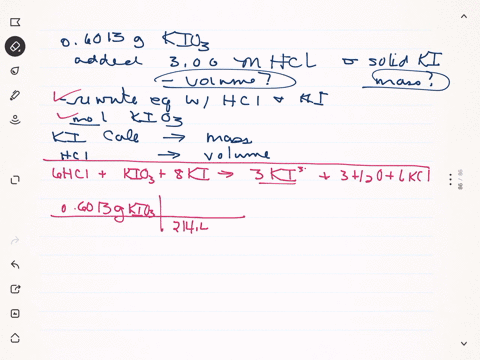 0.6013 g KIO₃
added 3.00 M HCL & solid KI
- volume? mass?
rewrite eq w/ HCl & KI
mol KIO₃
KI Calc → mass
HCl → volume
6HCl + KIO₃ + 8KI → 3 KI³⁻ + 3H2O + 6KCl
0.6013g KIO₃
214.